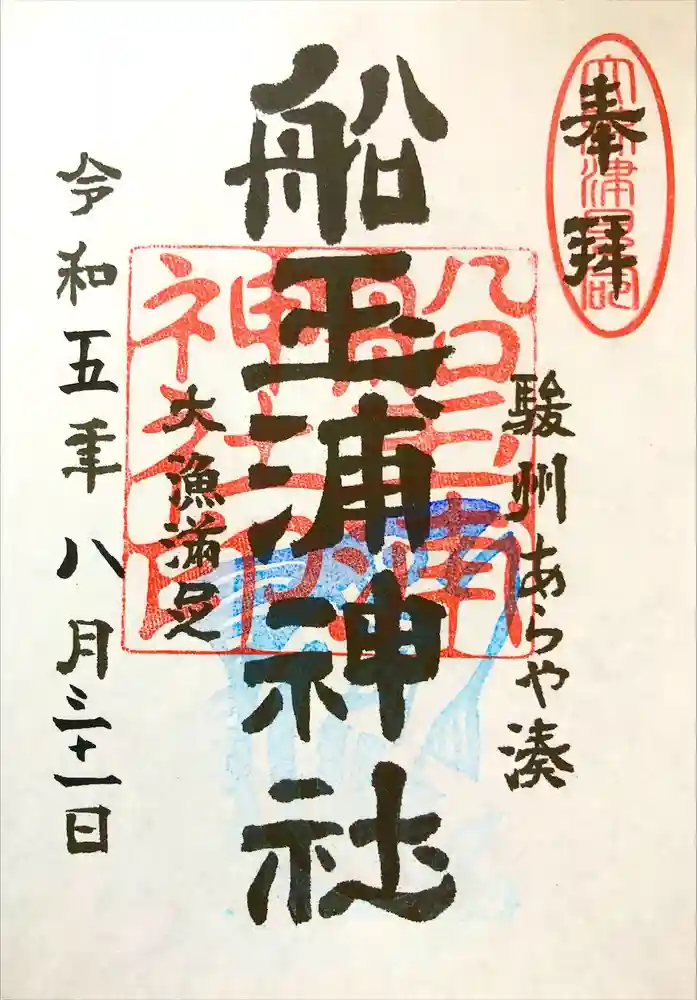 奉拝
駿州あらや湊
船玉浦神社
大漁満足
令和五年八月三十一日
船玉浦神社印